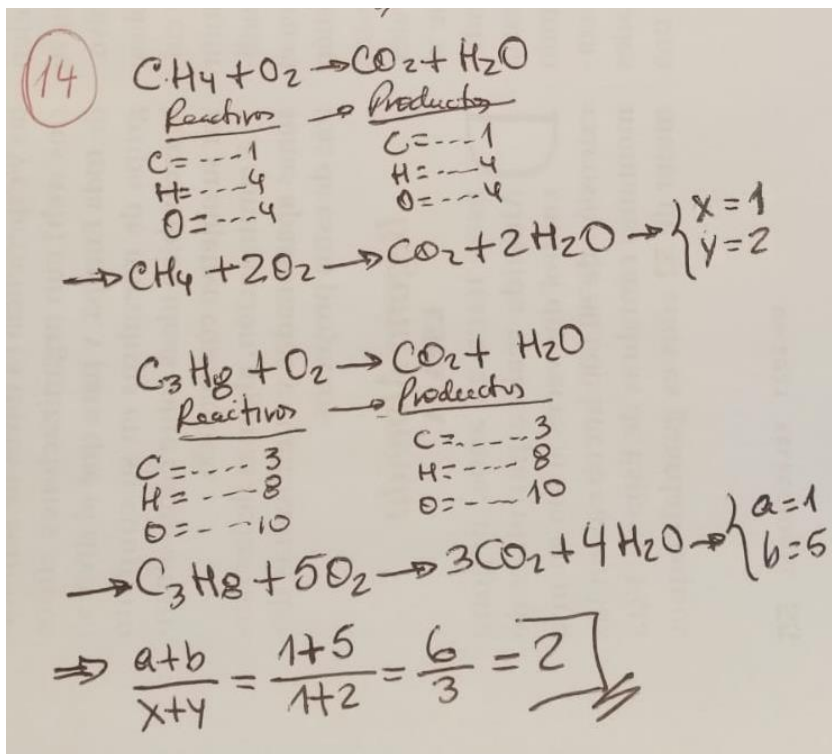 14
CH4 + O2 → CO2 + H2O
Reactivos → Productos
C = ---- 1 C = ---- 1
H = ---- 4 H = ---- 4
O = ---- 4 O = ---- 4
→ CH4 + 2O2 → CO2 + 2H2O → { x = 1
y = 2
C3H8 + O2 → CO2 + H2O
Reactivos → Productos
C = ---- 3 C = ---- 3
H = ---- 8 H = ---- 8
O = ---- 10 O = ---- 10
→ C3H8 + 5O2 → 3CO2 + 4H2O → { a = 1
b = 5
⇒ a+b/x+y = 1+5/1+2 = 6/3 = 2